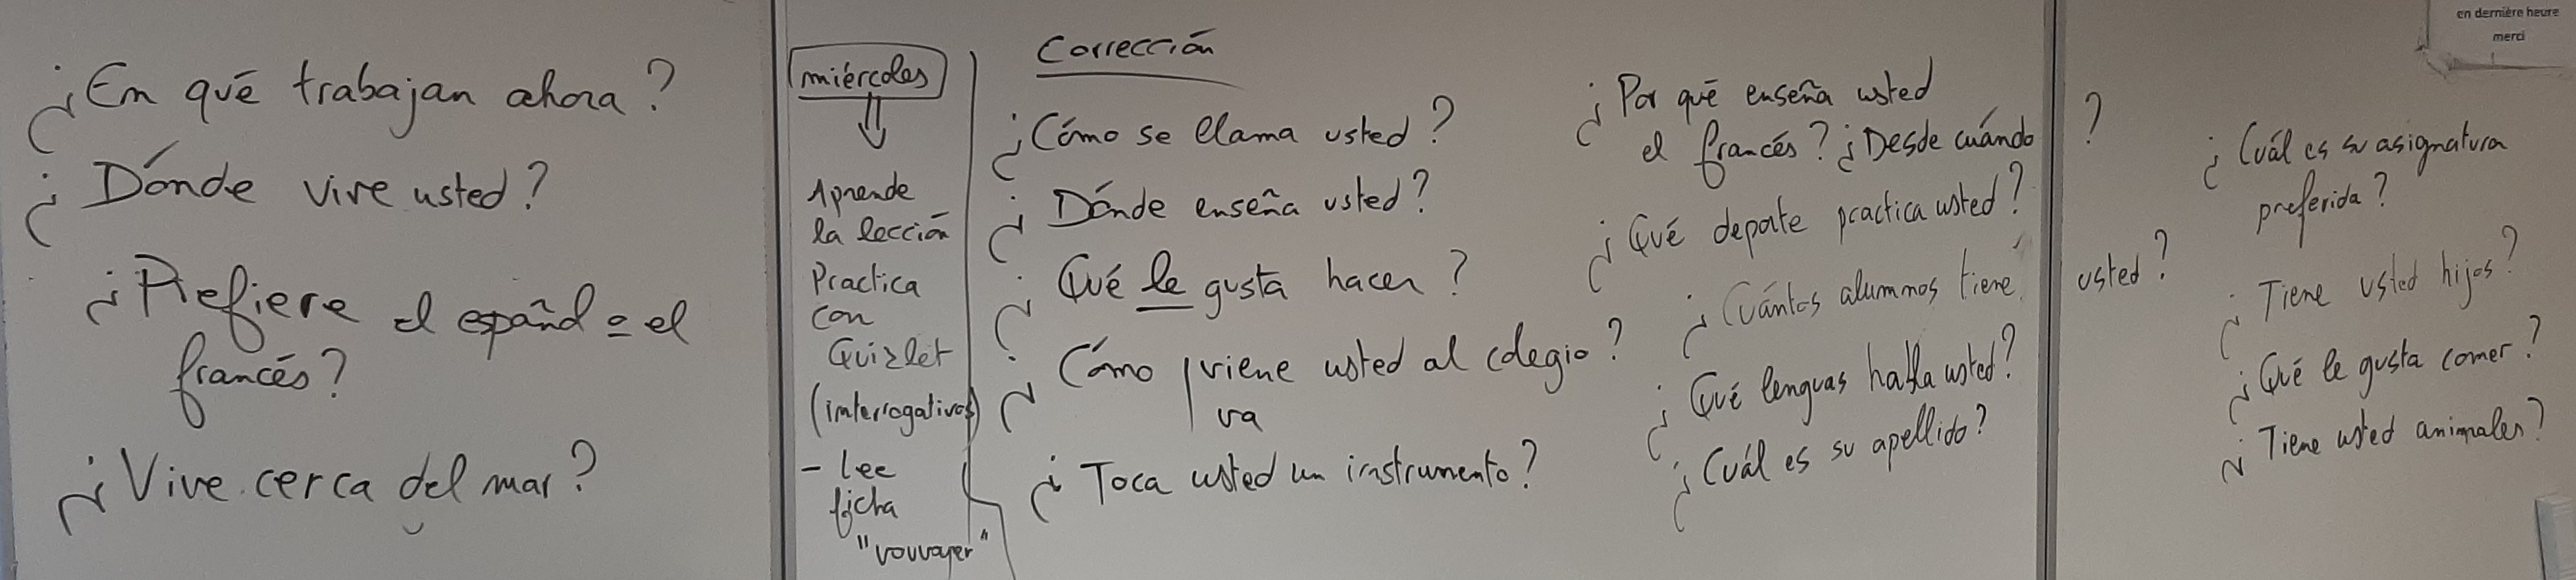 ¿En qué trabajan ahora?
¿Dónde vive usted?
¿Prefiere el español o el
francés?
¿Vive cerca del mar?
miércoles
Aprende
la lección
Practica
con
Quizlet
(interrogativos)
- lee
ficha
"vouvoyer"
Corrección
¿Cómo se llama usted?
¿Dónde enseña usted?
¿Qué le gusta hacer?
¿Cómo viene usted al colegio?
va
¿Toca usted un instrumento?
¿Por qué enseña usted
el francés? ¿Desde cuándo ?
¿Qué deporte practica usted?
¿Cuántos alumnos tiene usted?
¿Qué lenguas habla usted?
¿Cuál es su apellido?
¿Cuál es su asignatura
preferida?
¿Tiene usted hijos?
¿Qué le gusta comer?
¿Tiene usted animales?
en dernière heure
merci